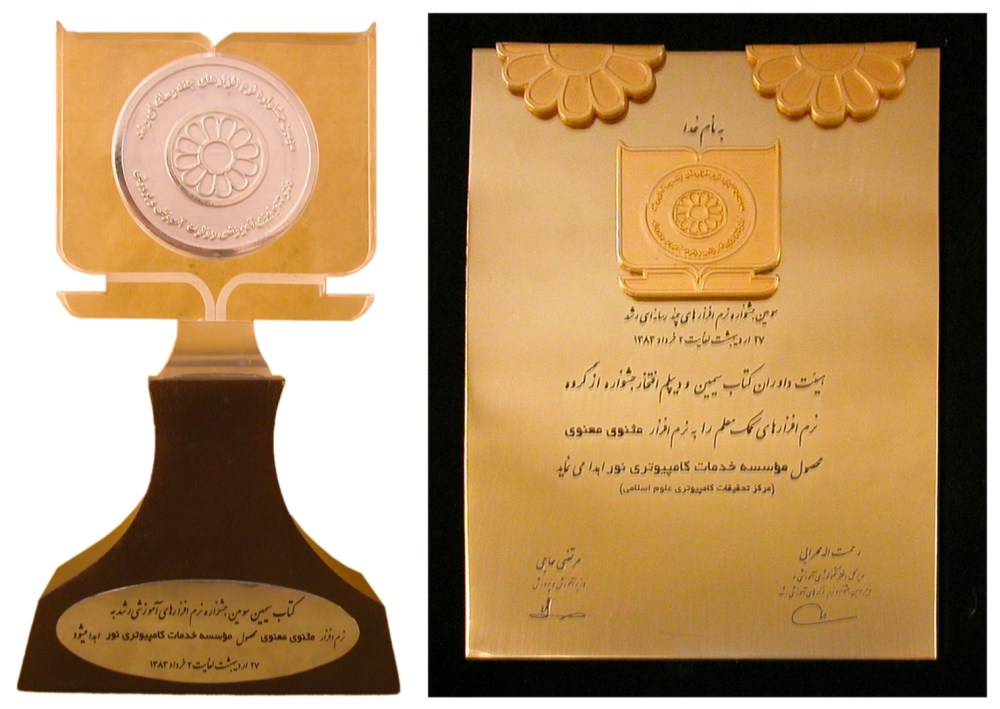 سومین جشنواره نرم افزارهای چند رسانه ای رشد
کتاب سیمین سومین جشنواره نرم افزارهای آموزشی رشد به
نرم افزار مثنوی معنوی محصول مؤسسه خدمات کامپیوتری نور اهدا میشود
۲۷ اردیبهشت لغایت ۲ خرداد ۱۳۸۳
به نام خدا
سومین جشنواره نرم افزارهای چند رسانه ای رشد
۲۷ اردیبهشت لغایت ۲ خرداد ۱۳۸۳
هیئت داوران کتاب سیمین و دیپلم افتخار جشنواره از گروه
نرم افزارهای کمک معلم را به نرم افزار مثنوی معنوی
محصول مؤسسه خدمات کامپیوتری نور اهدا می نماید
(مرکز تحقیقات کامپیوتری علوم اسلامی)
رحمت اله مهرابی
مدیر کل دفتر تکنولوژی آموزشی و
مرتضی حاجی
وزیر آموزش و پرورش